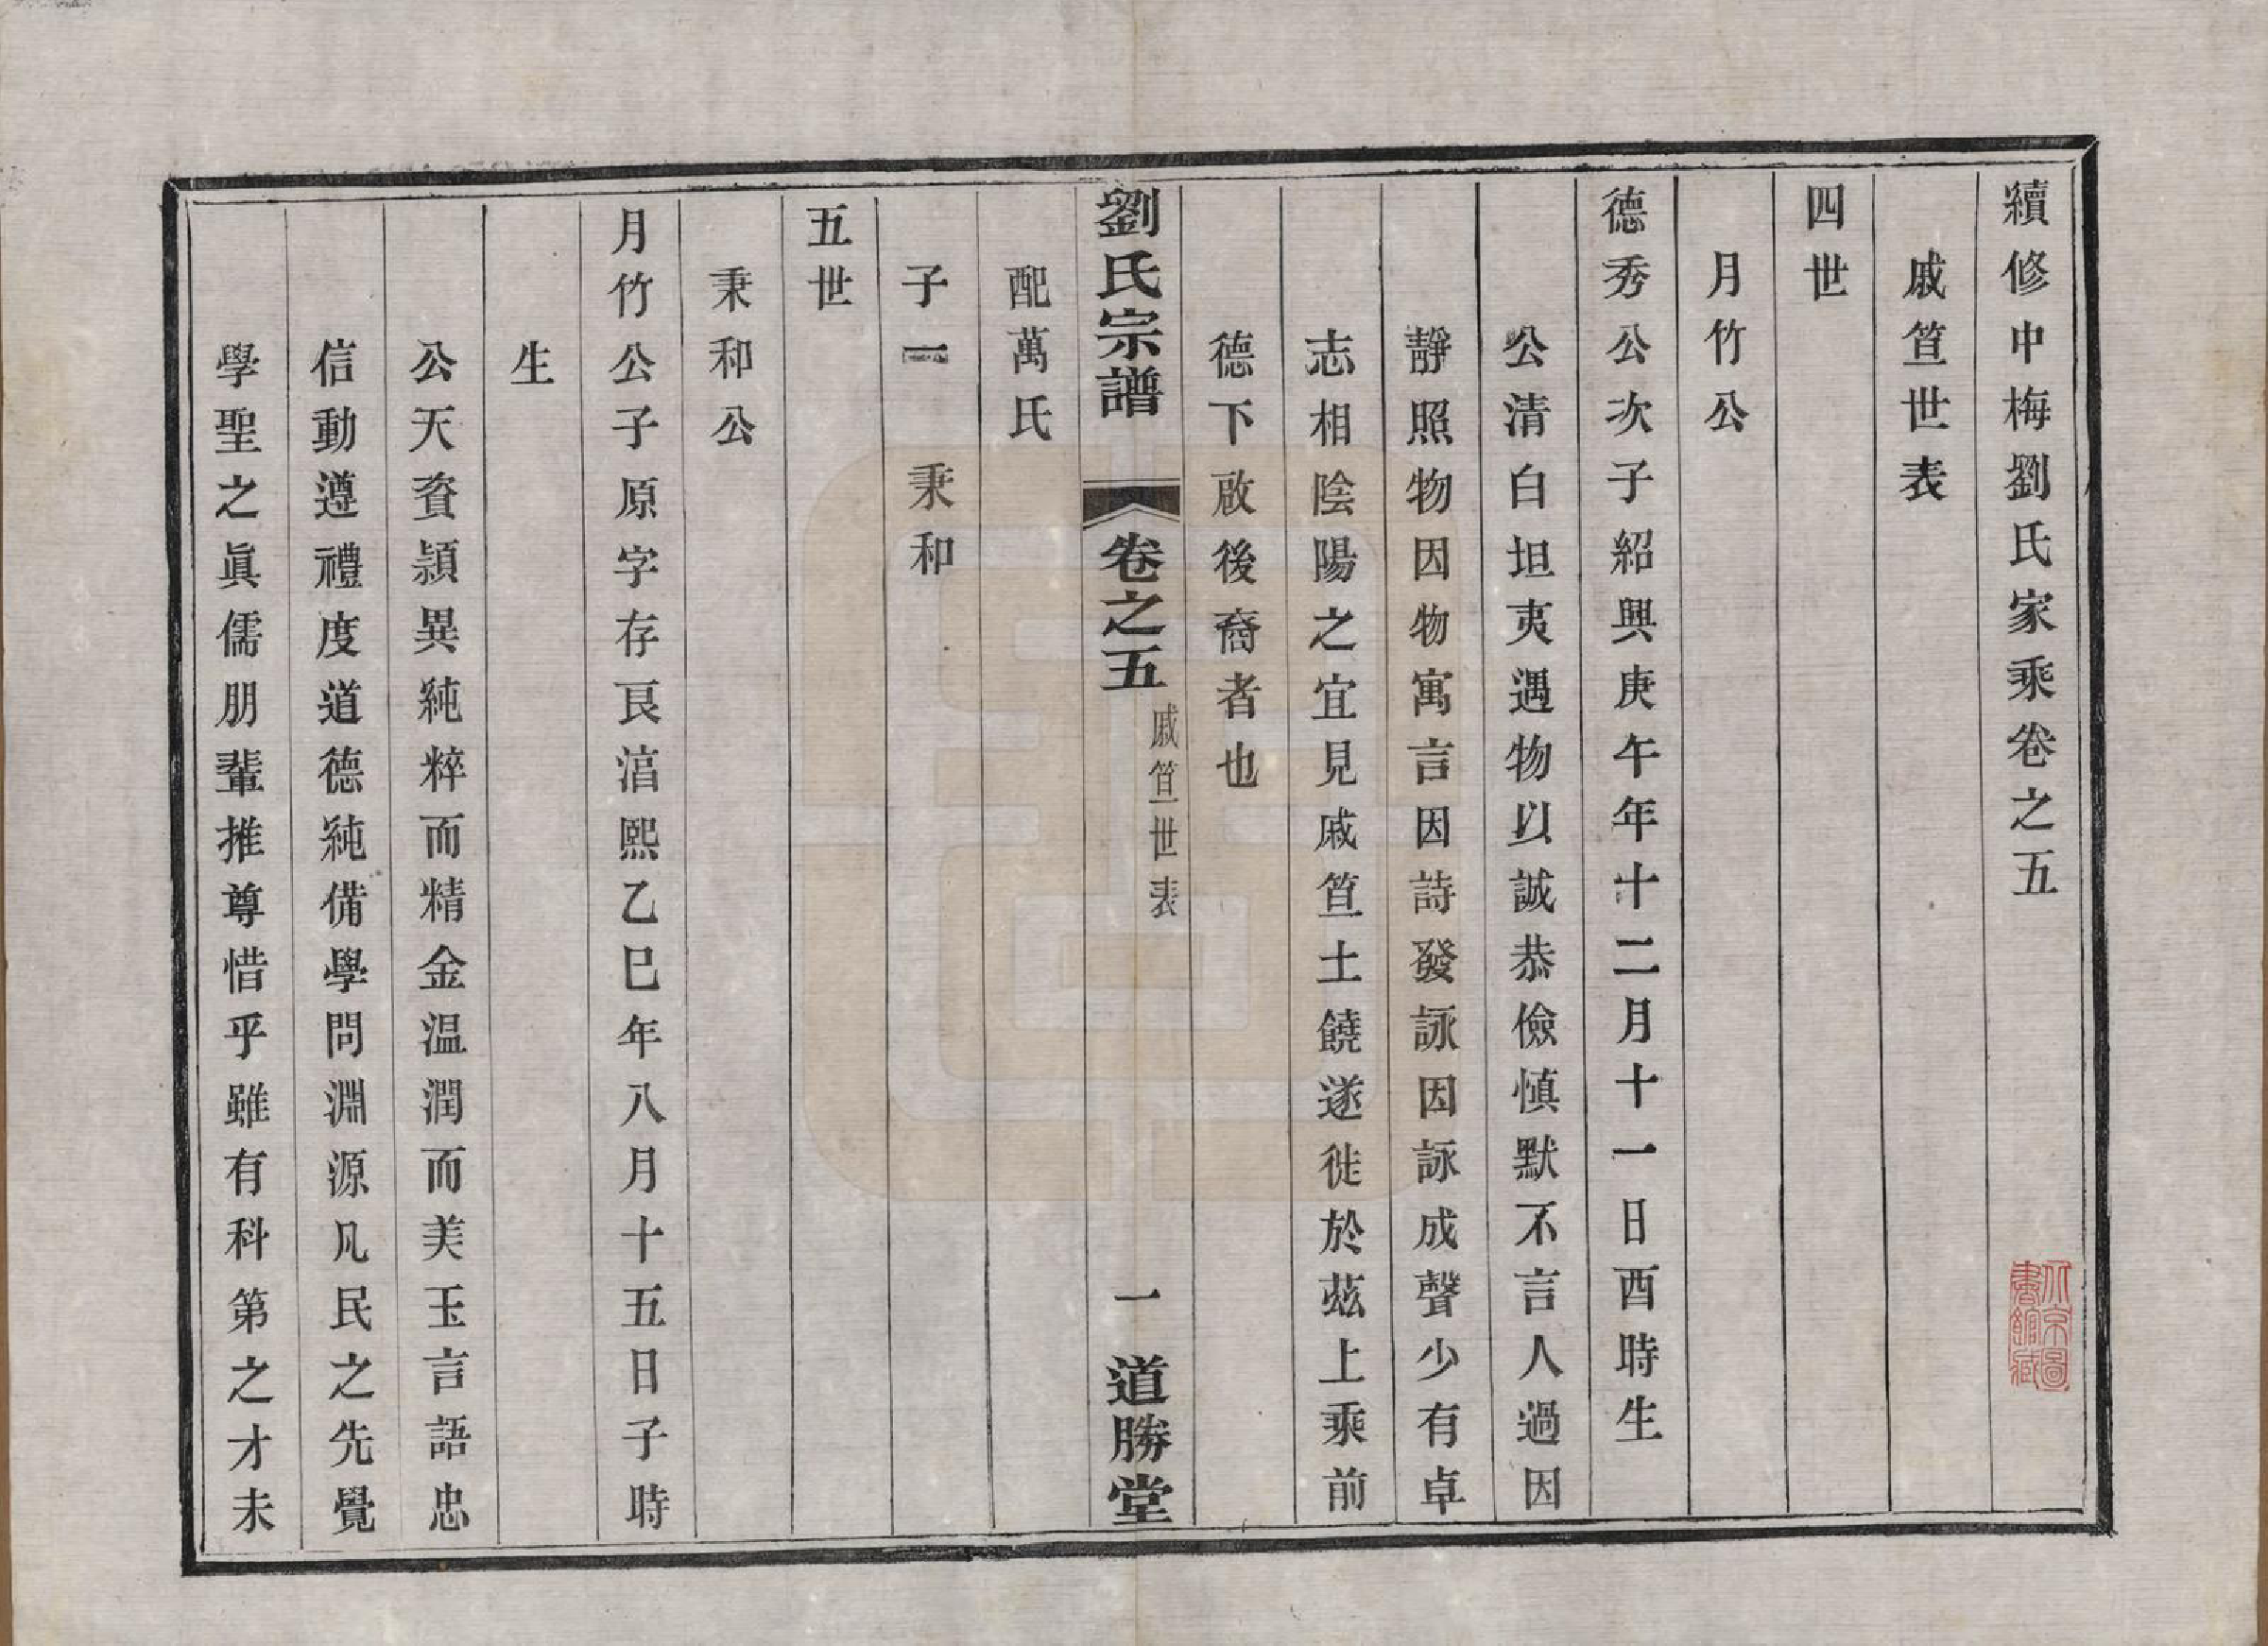 續修中梅劉氏家乘卷之五
戚笪世表
四世
月竹公
德秀公次子紹興庚午年十二月十一日酉時生
公清白坦夷遇物以誠恭儉慎默不言人過因
靜照物因物寓言因詩發詠因詠成聲少有卓
志相陰陽之宜見戚笪土饒遂徙於茲上乘前
德下啟後裔者也
劉氏宗譜
卷之五
戚笪世表
一
道勝堂
配萬氏
子一 秉和
五世
秉和公
月竹公子原字存艮湻熙乙巳年八月十五日子時
生
公天資頴異純粹而精金温潤而美玉言語忠
信動遵禮度道德純備學問淵源凡民之先覺
學聖之眞儒朋輩推尊惜乎雖有科第之才未
北京圖
書館藏